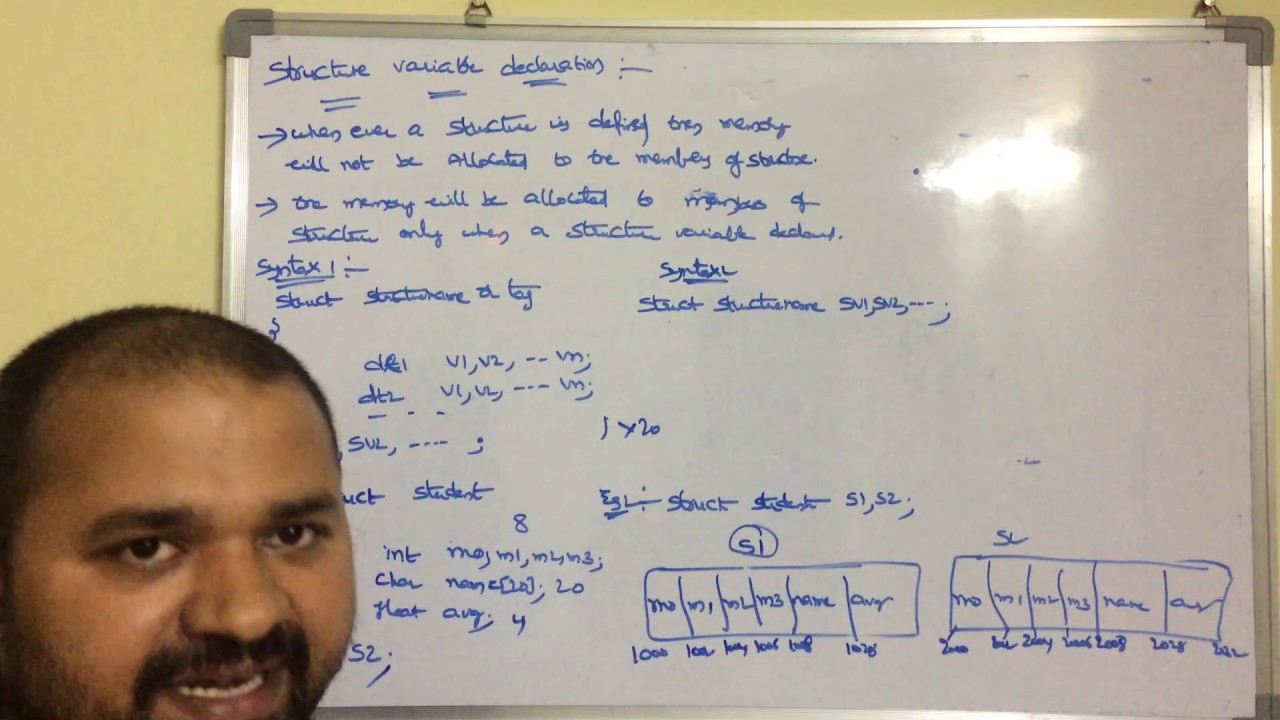 Structure variable declaration :-
→ when ever a structure is defined the memory
will not be Allocated to the members of structure.
→ the memory will be allocated to members of
structure only when a structure variable declared.
Syntax 1 :-
Syntax2
struct structurename or tag
struct structurename SV1,SV2,---;
{
dt1 V1,V2, -- Vn;
dt2 V1,V2, --- Vn;
- - -
, SV2, ---- ;
1×20
uct student
Eg2:- struct student S1,S2;
8
int rno,m1,m2,m3;
char name[20]; 20
float avg; 4
S2;
S1
rno m1 m2 m3 name avg
1000 1002 1004 1006 1008 1028
S2
rno m1 m2 m3 name avg
2000 2002 2004 2006 2008 2028 2032